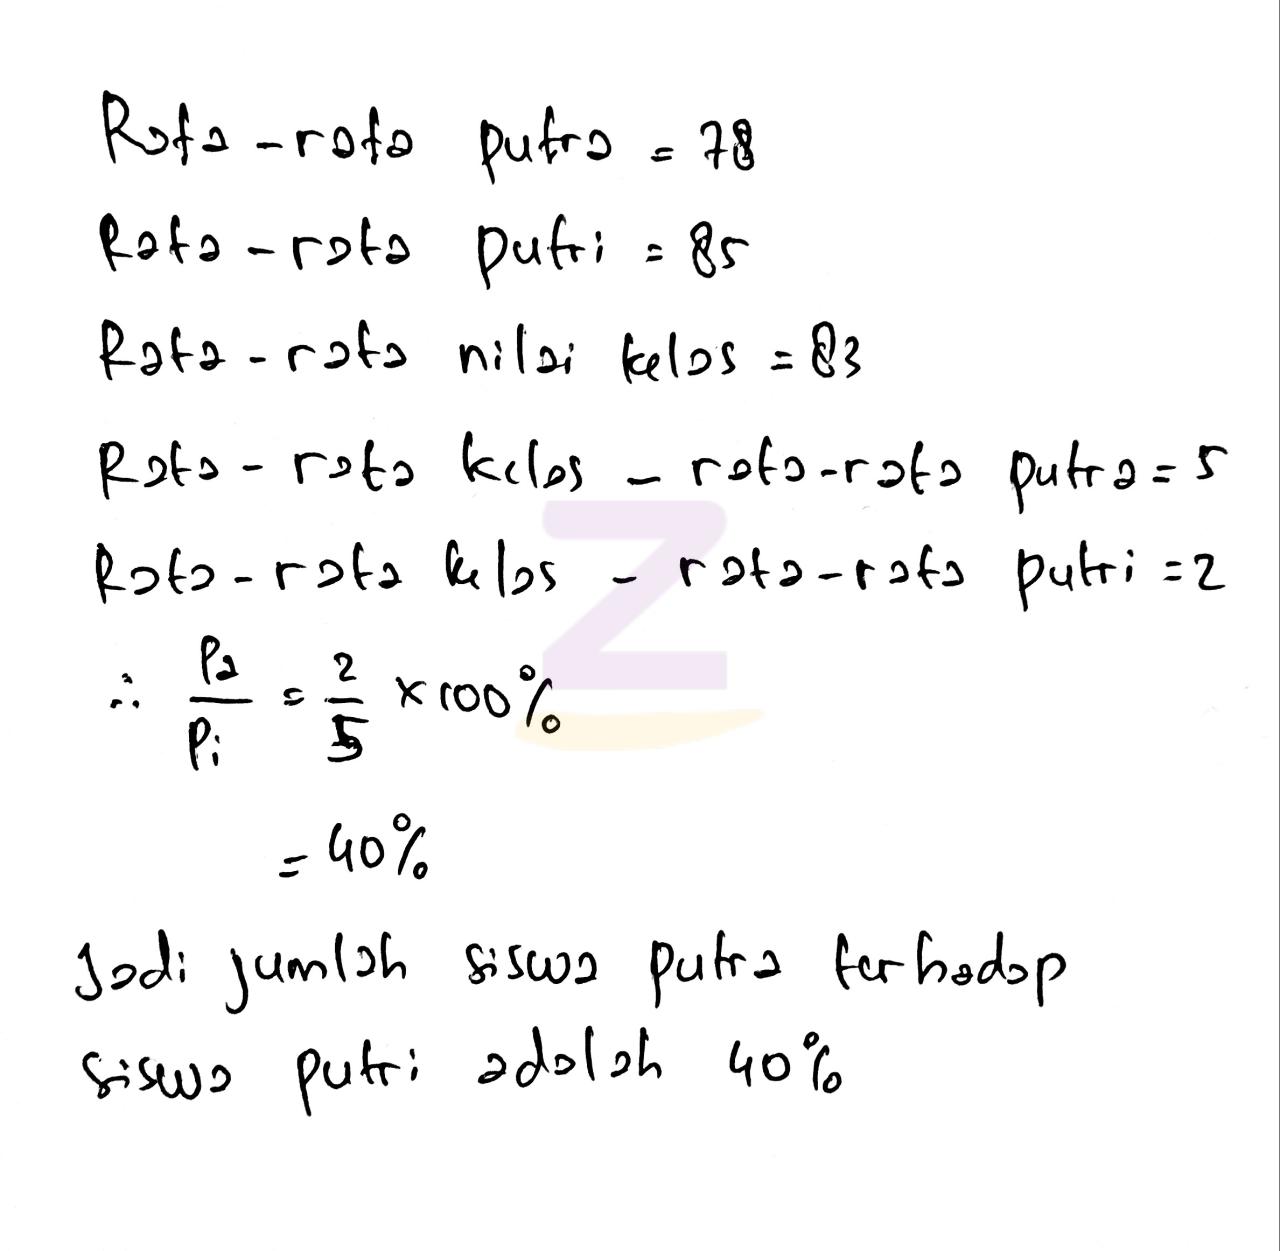 Rata-rata putra = 78
Rata-rata putri = 85
Rata-rata nilai kelas = 83
Rata-rata kelas - rata-rata putra = 5
Rata-rata kelas - rata-rata putri = 2
∴ Pa/Pi = 2/5 × 100%
= 40%
Jadi jumlah siswa putra terhadap
siswa putri adalah 40%